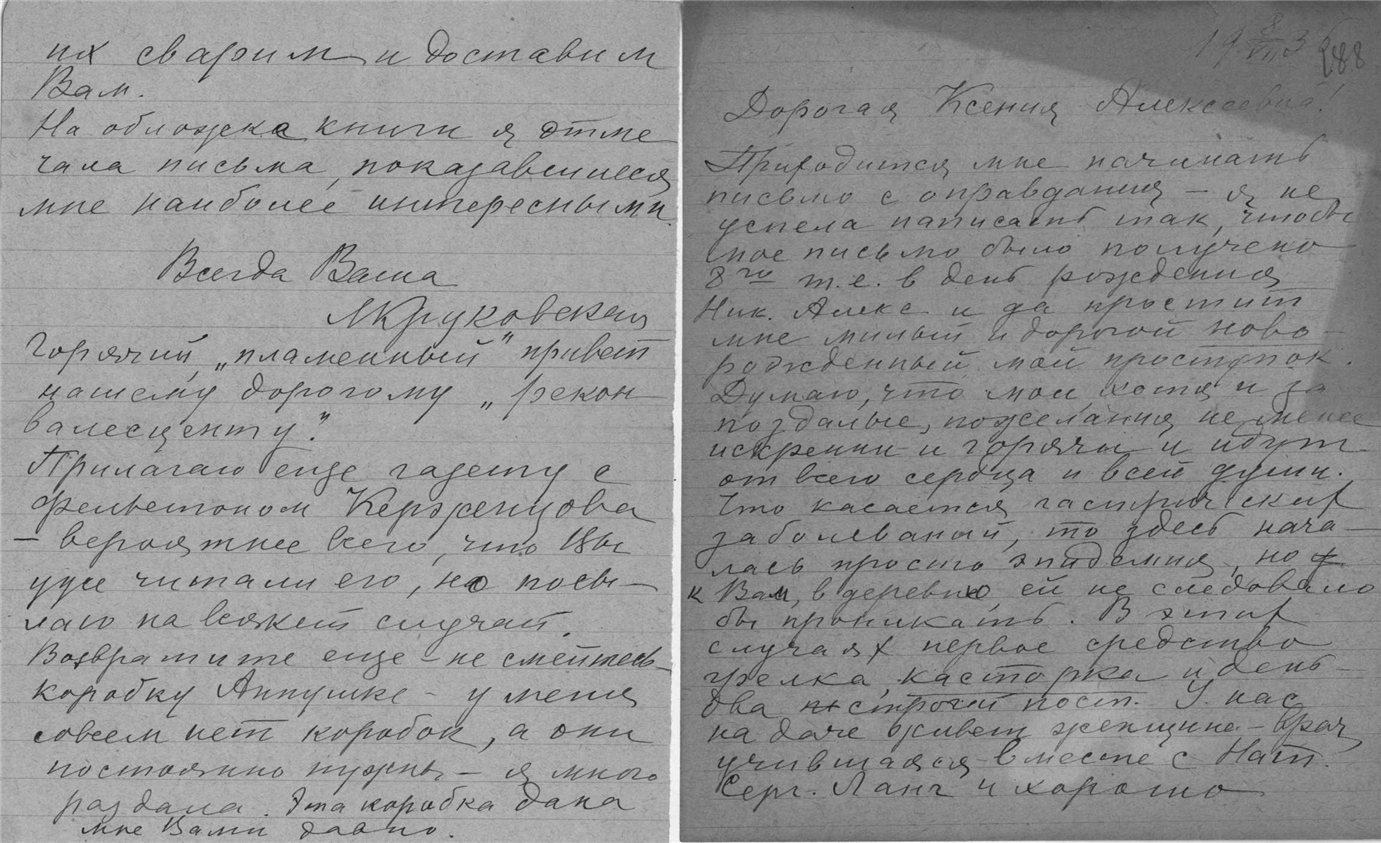 их сварим и доставим
Вам.
На обложке книги я отме
чала письма, показавшиеся
мне наиболее интересными
Всегда Ваша
МКруковская
Горячий, „пламенный" привет
нашему дорогому „рекон-
валесценту".
Прилагаю еще газету с
фельетоном Керженцова
– вероятнее всего, что Вы
уже читали его, но посы-
лаю на всякий случай.
Возвратите еще – не смейтесь –
коробку Аннушке – у меня
совсем нет коробок, а они
постоянно нужны – я много
раздала. Эта коробка дана
мне Вами давно.
19 8/VII 3
288
Дорогая Ксения Алексеевна!
Приходится мне начинать
письмо с оправдания – я не
успела написать так, чтобы
мое письмо было получено
8го т.е. в день рождения
Ник. Алекс и да простит
мне милый и дорогой ново-
рожденный мой проступок.
Думаю, что мои хотя и за
поздалые, пожелания не менее
искренни и горячи и идут
от всего сердца и всей души.
Что касается гастрических
заболеваний, то здесь нача-
лась просто эпидемия, но
к Вам, в деревню, ей не следовало
бы проникать. В этих
случаях первое средство
грелка, касторка и день-
два строгий пост. У нас
на даче живет женщина-врач,
учившаяся вместе с Нат.
Серг. Ланг и хорошо